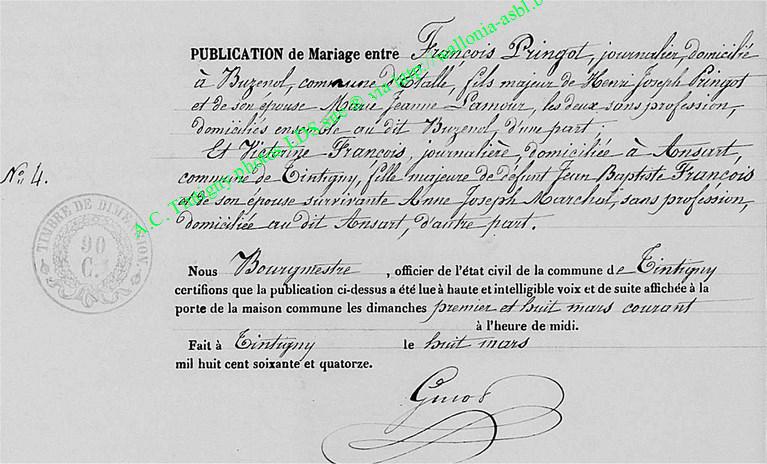 PUBLICATION de Mariage entre François Pringot, journalier, domicilié
à Buzenol, commune d'Etalle, fils majeur de Henri Joseph Pringot
et de son épouse Marie Jeanne Lamour, les deux sans profession,
domiciliés ensemble au dit Buzenol, d'une part.
Et Victorine François, journalière, domiciliée à Ansart,
No 4.
commune de Tintigny, fille majeure de défunt Jean Baptiste François
et de son épouse survivante Anne Joseph Marchot, sans profession,
domiciliée au dit Ansart, d'autre part.
TIMBRE DE DIMENSION
90
C.
Nous Bourgmestre, officier de l'état civil de la commune de Tintigny
certifions que la publication ci-dessus a été lue à haute et intelligible voix et de suite affichée à la
porte de la maison commune les dimanches premier et huit mars courant
à l'heure de midi.
Fait à Tintigny le huit mars
mil huit cent soixante et quatorze.
A.C. Tintigny photos LDS via http://wallonia-asbl.b